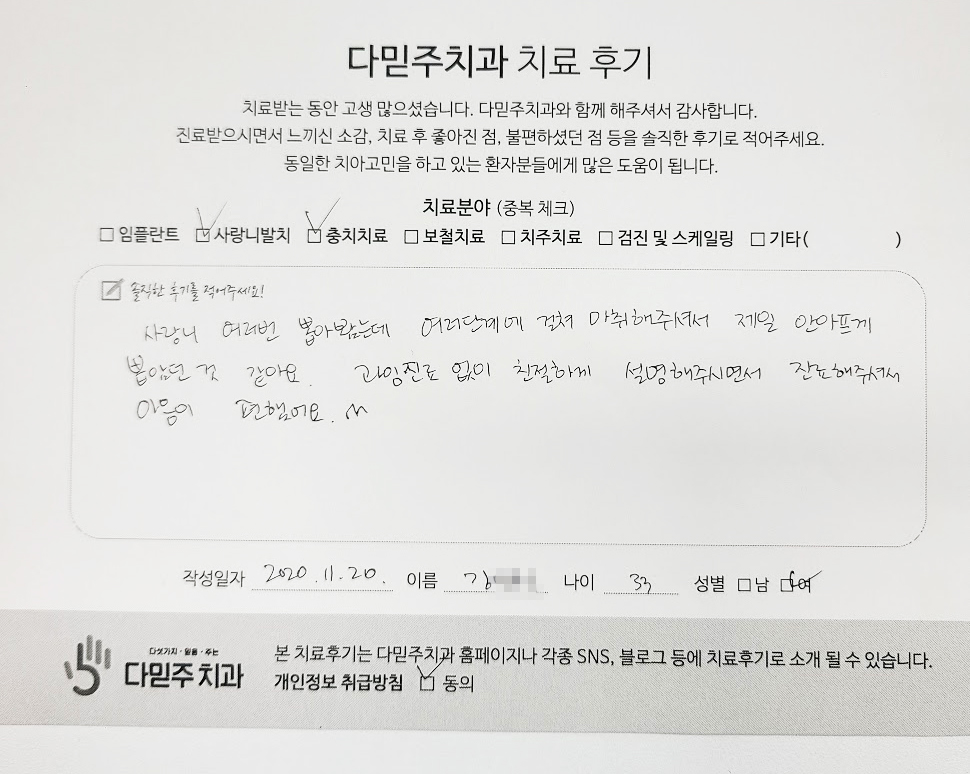 다믿주치과 치료 후기
치료받는 동안 고생 많으셨습니다. 다믿주치과와 함께 해주셔서 감사합니다.
진료받으시면서 느끼신 소감, 치료 후 좋아진 점, 불편하셨던 점 등을 솔직한 후기로 적어주세요.
동일한 치아고민을 하고 있는 환자분들에게 많은 도움이 됩니다.
치료분야 (중복 체크)
☐ 임플란트 ☑ 사랑니발치 ☑ 충치치료 ☐ 보철치료 ☐ 치주치료 ☐ 검진 및 스케일링 ☐ 기타 ( )
솔직한 후기를 적어주세요!
사랑니 여러번 뽑아봤는데 여러단계에 걸쳐 마취해주셔서 제일 안아프게
뽑았던 것 같아요. 과잉진료 없이 친절하게 설명해주시면서 진료해주셔서
마음이 편했어요. ^^
작성일자 2020.11.20. 이름 나이 33 성별 ☐ 남 ☑ 여
다섯가지·믿음·주는
다믿주치과
본 치료후기는 다믿주치과 홈페이지나 각종 SNS, 블로그 등에 치료후기로 소개 될 수 있습니다.
개인정보 취급방침 ☑ 동의